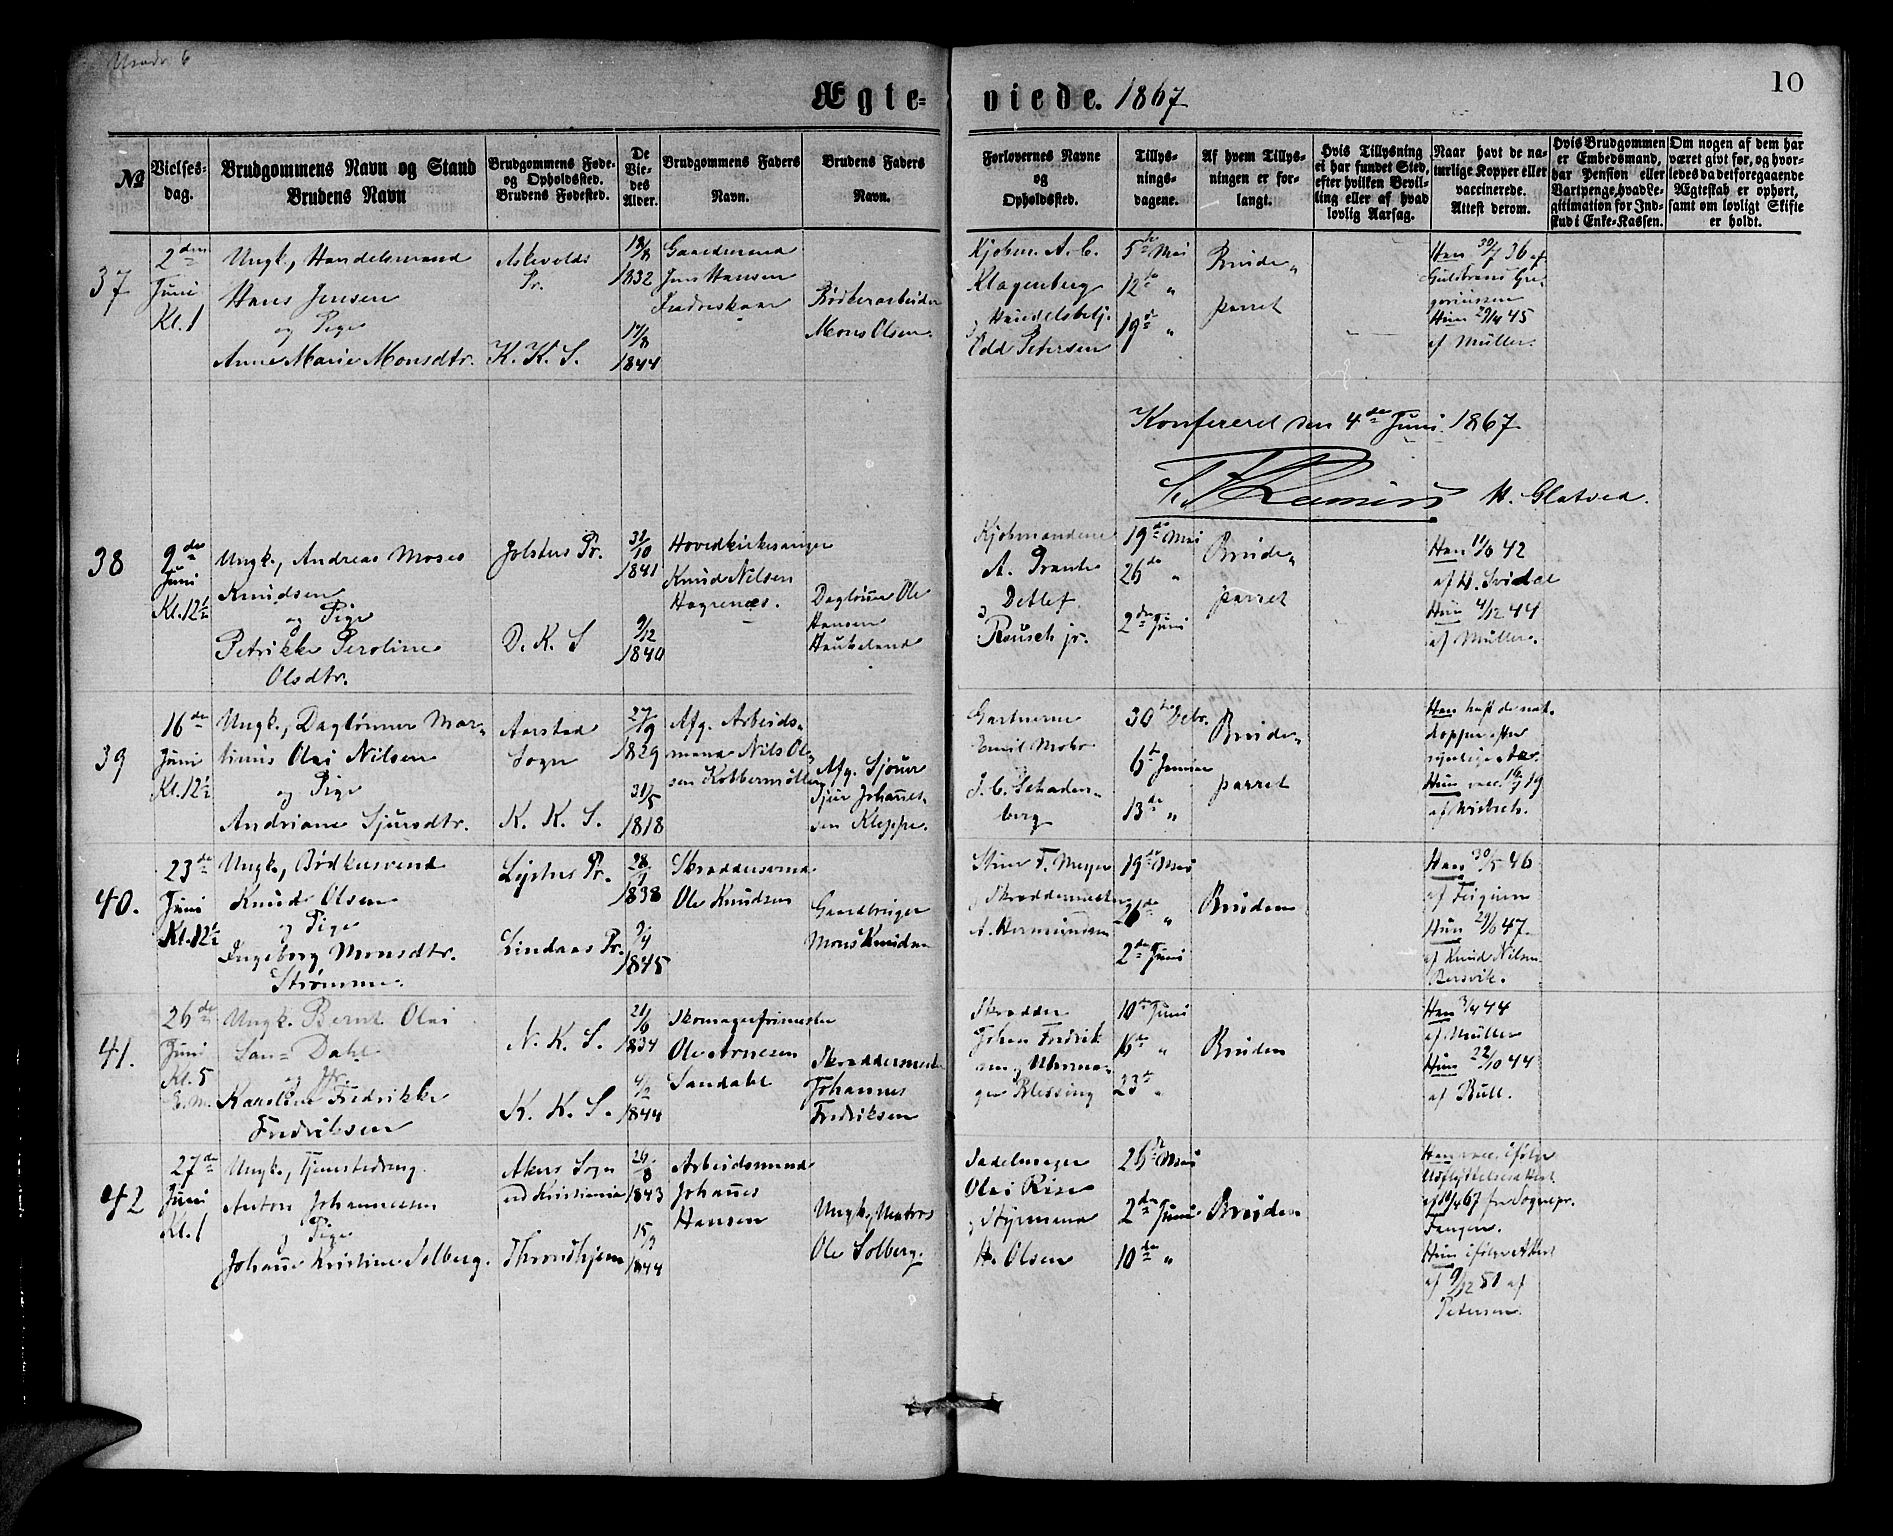 Ægte=
viede. 1867
10
No
Vielses-
dag.
Brudgommens Navn og Stand
Brudens Navn
Brudgommens Føde-
og Opholdssted.
Brudens Fødested.
De
Vie-
des
Alder.
Brudgommens Faders
Navn.
Brudens Faders
Navn.
Forlovernes Navne
og
Opholdssted.
Tillys-
nings-
dagene.
Af hvem Tillys-
ningen er for-
langt.
Hvis Tillysning
ei har fundet Sted,
efter hvilken Bevil-
ling eller af hvad
lovlig Aarsag.
Naar havt de na-
turlige Kopper eller
vaccinerede.
Attest derom.
Hvis Brudgommen
er Embedsmand,
har Pension eller
Vartpenge, hvad Le-
gitimation for Ind-
skud i Enke-Kassen.
Om nogen af dem har
været givt før, og hvor-
ledes da det foregaaende
Ægteskab er ophørt,
samt om lovligt Skifte
er holdt.
37
2den
Juni
Kl. 1
Ungk., Handelsmand
Hans Jensen
og Pige
Anne Marie Monsdtr.
Askevolds
Pr.
K. K. S.
18/8
1832
17/8
1844
Gaardmand
Jens Hansen
Indreskaar
Rødberarbeider
Mons Olsen.
Kjøbm. A. C.
Klagenberg
Handelsbetj.
Edd Petersen
5te Mai
12te "
19de "
Brude-
parret
Han 30/7 36 af
Guldbrand Gre-
goriussen
Hun 29/4 45
af Müller.
Konfereret den 4de Juni 1867
H. Glatved.
38
9de
Juni
Kl. 12 1/2
Ungk., Andreas Moses
Knudsen
og Pige
Petrikke Peroline
Olsdtr.
Jølsters Pr.
D. K. S
31/10
1841
9/12
1840
Hovedkirkesanger
Knud Nilsen
Hagrenæs.
Daglønner Ole
Hansen
Haukeland
Kjøbmændene
A. Brante
Detlef
Reusch jr.
19de Mai
26de "
2den Juni
Brude-
parret
Han 11/6 42
af H. Svidal
Hun 4/12 44
af Müller.
39
16de
Juni
Kl. 12 1/2
Ungk., Daglønner Mar-
tinus Olai Nilsen
og Pige
Andriane Sjursdtr.
Aarstad
Sogn
K. K. S.
27/9
1829
31/5
1818
Afg. Arbeids-
mand Nils Ol-
sen Kobbermølle
Afg. Sjouer
Sjur Johannes-
sen Kleppe.
Gartnerne
Emil Mohr
J. C. Schaden-
berg
30te Debr.
6te Januar
13de "
Brude-
parret
Han haft de nat.
kopper efter
synlige Ar.
Hun vacc. 19
af Wisbech.
40.
23de
Juni
Kl. 12 1/2
Ungk., Bødkersvend
Knud Olsen
og Pige
Ingeborg Monsdtr.
Strømme.
Lysters Pr.
Lindaas Pr.
28/1
1838
9/4
1845
Skræddersvend
Ole Knudsen
Gaardbruger
Mons Knudsen
Stuer F. Meyer
og Skræddermester
A. Hermundsen
19de Mai
26de "
2den Juni
Bruden
Han 30/5 46
af Feigum
Hun 29/6 47.
af Knud Nilsen
Bersvik.
41.
26de
Juni
Kl. 5
E. M.
Ungk. Bernt Olai
San= Dahl
og Pr.
Karoline Fredrikke
Fredriksen
N. K. S.
K. K. S.
21/6
1834
4/2
1844
Skomagerfrimester
Ole Arnesen
Sandahl
Skræddermester
Johannes
Fredriksen
Skrædder
Johan Fredrik
sen og Uhrma-
ger Blessing
10de Juni
16de "
23de "
Bruden
Han 3/4 44
af Müller
Hun 22/10 44
af Bull.
42
27de
Juni
Kl. 1
Ungk., Tjenestedreng
Anton Johannesen
og Pige
Johanne Kristine Solberg.
Akers Sogn
ved Kristiania
Throndhjem
26/8
1843
15/9
1844
Arbeidsmand
Johannes
Hansen
Ungk., Matros
Ole Solberg.
Sadelmager
Olai Rise
og Styrmand
H. Olsen
26de Mai
2den Juni
10de "
Bruden
Han vacc. ifølge
Udflytttelsesattest
af 10/4 67 fra Sognepr.
Fangen.
Hun ifølge Attest
af 9/12 51 af
Petersen.